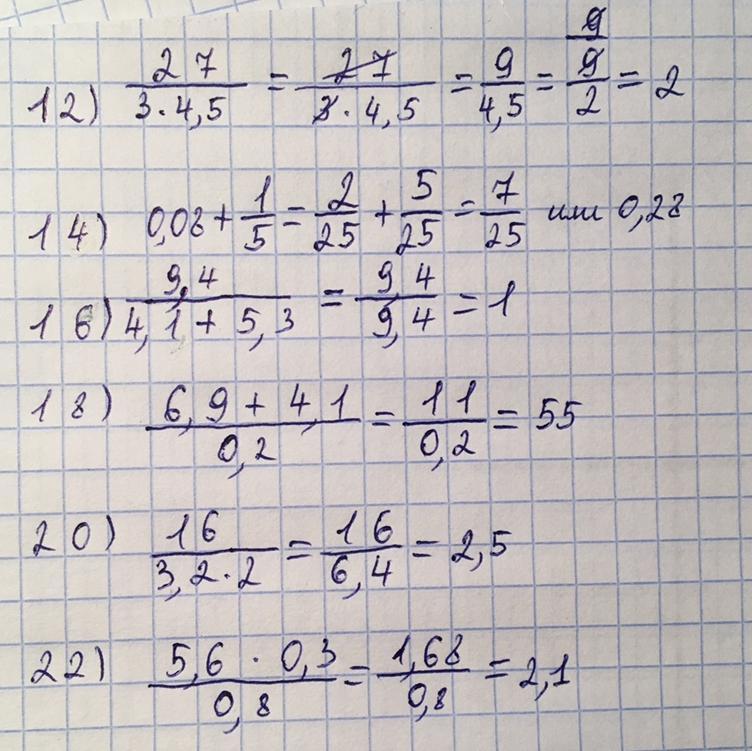 12) 27/(3·4,5) = 27/(3·4,5) = 9/4,5 = 9/(9/2) = 2
14) 0,08 + 1/5 = 2/25 + 5/25 = 7/25 или 0,28
16) 9,4/(4,1 + 5,3) = 9,4/9,4 = 1
18) (6,9 + 4,1)/0,2 = 11/0,2 = 55
20) 16/(3,2·2) = 16/6,4 = 2,5
22) (5,6 · 0,3)/0,8 = 1,68/0,8 = 2,1